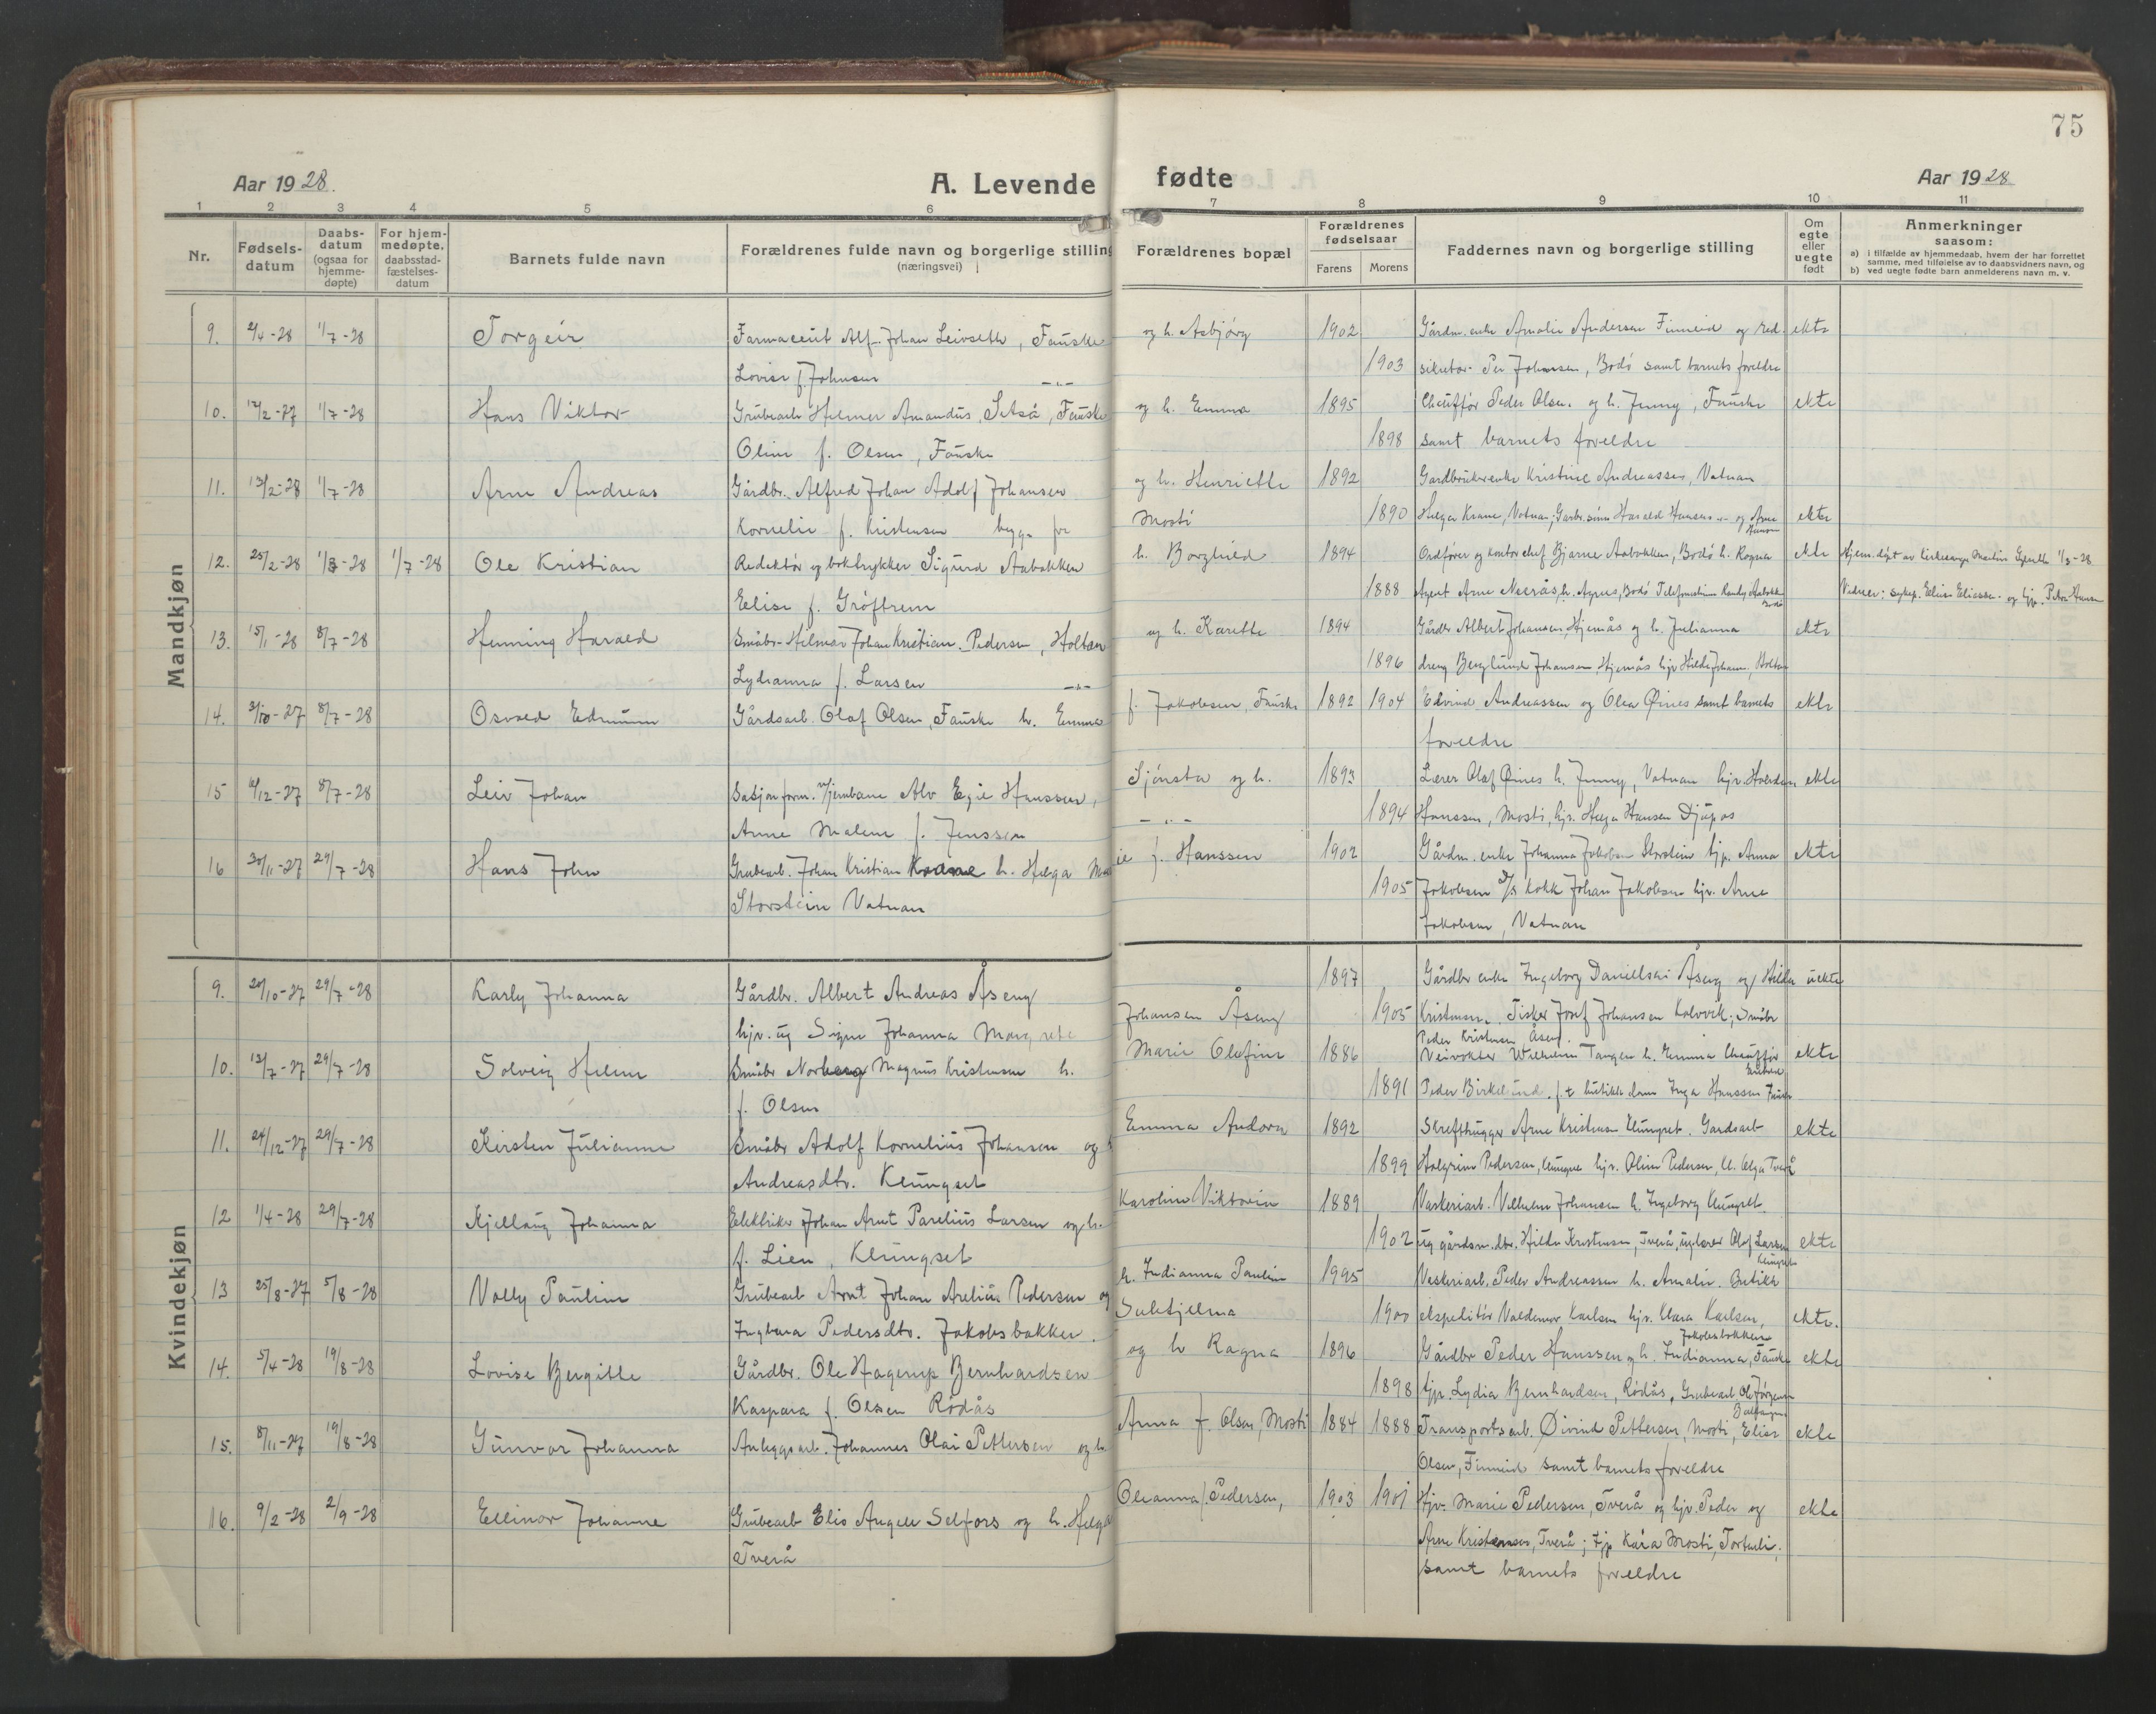 75
Aar 1928.
A. Levende fødte
Aar 1928
1 2 3 4 5 6 7 8 9 10 11
Nr.
Fødsels-datum
Daabs-datum (ogsaa for hjemme-døpte)
For hjem-medøpte, daabsstad-fæstelses-datum
Barnets fulde navn
Forældrenes fulde navn og borgerlige stilling (næringsvei)
Forældrenes bopæl
Forældrenes fødselsaar
Farens Morens
Faddernes navn og borgerlige stilling
Om egte eller uegte født
Anmerkninger saasom:
a) i tilfælde av hjemmedaab, hvem der har forrettet samme, med tilføielse av to daabsvidners navn, og
b) ved uegte fødte barn anmelderens navn m. v.
Mandkjøn
9. 2/4-28 1/7-28 Torgeir Farmaceut Alf Johan Leivseth, Fauske og h. Asbjørg 1902 Gårdm.enke Amalie Andersen Finneid og red. ekte
Lovise f. Johnsen -"- 1903 sekretær Per Johansen, Bodø samt barnets foreldre
10. 12/2-27 1/7-28 Hans Viktor Grubearb Helmer Amandus, Setså, Fauske og h. Emma 1895 Chauffør Peder Olsen og h. Jenny, Fauske ekte
Oline f. Olsen, Fauske 1898 samt barnets foreldre
11. 13/2-28 1/7-28 Arne Andreas Gårdbr. Alfred Johan Adolf Johansen og h. Henriette 1892 Gardbrukerenke Kristine Andreassen, Vatnan
Kornelie f. Kristensen Mosti 1890 Helga Krane, Vatnan; Garbr.sønn Harald Hansen -"- og Arne Hansen ekte
12. 25/2-28 1/3-28 1/7-28 Ole Kristian Redaktør og boktrykker Sigurd Aabakken h. Borghild 1894 Ordfører og kontorchef Bjarne Aabakken, Bodø h. Ragna ekte Hjem.døpt av Martin 1/3-28
Elise f. Grøftrem 1888 Agent Arne h. Agnes, Bodø Randy Aabakken Bodø Vidner: sykep. Elise Eliassen og tjp. Petra Hansen
13. 15/1-28 8/7-28 Henning Harald Småbr. Hilmar Johan Kristian Pedersen, Holtan og h. Karette 1894 Gårdbr Albert Johansen, Hjemås og h. Julianna ekte
Lydianna f. Larsen -"- 1896 dreng Berglund Johansen, Hjemås hjv Hilda Johans. Holtan
14. 3/10-27 8/7-28 Osvald Edmunn Gårdsarb. Olaf Olsen, Fauske h. Emma f. Jakobsen, Fauske 1892 1904 Edvind Andreassen og Olea Øines samt barnets ekte
foreldre
15 10/12-27 8/7-28 Leiv Johan Sasjonform. v/jernbane Alv Egil Hanssen, Sjønsta og h. 1893 Lærer Olaf Øines h. Jenny, Vatnan ekte
Anne Malene f. Jenssen -"- 1894 Hanssen, Mosti, hjv. Helga Hansen Djupos
16 30/11-27 29/7-28 Hans John Grubearb. Johan Kristian Krane h. Helga Marie f. Hanssen 1902 Gårdm.enke Johanna Jakobsen Storstein hjp. Anna ekte
Storstein Vatnan 1905 Jakobsen d/s kokk Johan Jakobsen hjv. Arne
Jakobsen, Vatnan
Kvindekjøn
9. 20/10-27 29/7-28 Karly Johanna Gårdbr. Albert Andreas Åseng 1897 Gårdbr enke Ingeborg Danielsen Åseng og Hilda uekte
hjv. ug Signe Johanna Margrete Johansen Åseng 1905 Kristensen, Fisker Josef Johansen Kalvvik; Småbr
Peder Kristensen Åseng.
10. 12/7-27 29/7-28 Solveig Helene Småbr Norberg Magnus Kristensen h. Marie Olefine 1886 Veivokter Wilhelm Tangen h. Emma Chauffør ekte
f. Olsen 1891 Peder Birkelund. f.t butikkdame Inga Hanssen
11. 24/12-27 29/7-28 Kirsten Julianne Småbr Adolf Kornelius Johansen og h Emma Andora 1892 Arne Kristensen Klungset. Gardsarb ekte
Andreasdtr. Klungset 1899 Halgrim Pedersen, Klungset hjv. Oline Pedersen, Kl. Olga Tverå
12 1/4-28 29/7-28 Kjellaug Johanna Elektriker Johan Arnt Parelius Larsen og h. Karoline Viktoria 1889 Vaskeriarb. Vilhelm Johansen h. Ingeborg Klungset.
f. Lien, Klungset 1902 ug gårdm.dtr. Hilda Kristensen, Tverå, Olaf Larsen Klungset ekte
13 25/8-27 5/8-28 Volly Pauline Grubearb Arnt Johan Arelius Pedersen og h. Indianna Pauline 1995 Vaskeriarb. Peder Andreassen h. Amalie. Butikk
Ingbara Pedersdtr. Jakobsbakken. Sulitjelma 1900 ekspeditør Valdemar Karlsen hjv. Clara Karlsen, Jakobsbakken ekte.
14. 5/4-28 19/8-28 Lovise Bergitte Gårdbr. Ole Hagerup Bernhardsen og h Ragna 1896 Gårdbr Peder Hanssen og h. Indianna, Fauske ekte
Kaspara f. Olsen Rødås 1898 tjp. Lydia Bernhardsen, Rødås, Grubearb Ole Jørgensen
15. 8/11-27 19/8-28 Gunvor Johanna Anleggsarb. Johannes Olai Pettersen og h. Anna f. Olsen, Mosti 1884 1888 Transportarb. Øivind Pettersen, Mosti, Elise ekte
Olsen, Finneid samt barnets foreldre
16. 9/2-28 2/9-28 Ellinor Johanne Grubearb Elis Angell Selfors og h. Helga Oleanna f. Pedersen, 1903 1901 Hjv. Marie Pedersen, Tverå og hjv. Peder og ekte
Tverå Arne Kristensen, Tverå; tjp Kåra Mosti,
samt barnets foreldre